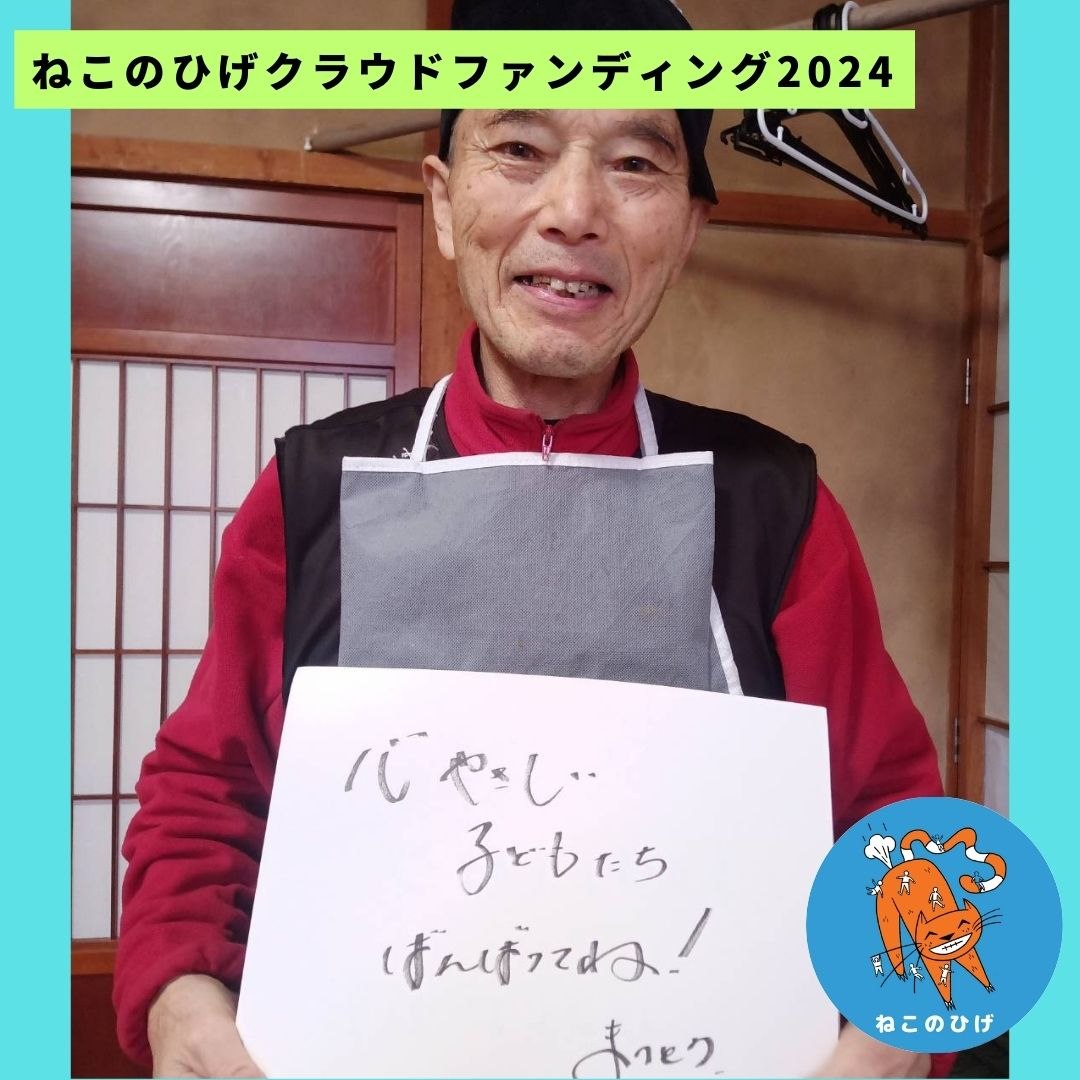 ねこのひげクラウドファンディング2024
心やさしい
子どもたち
がんばってね!
ねこのひげ